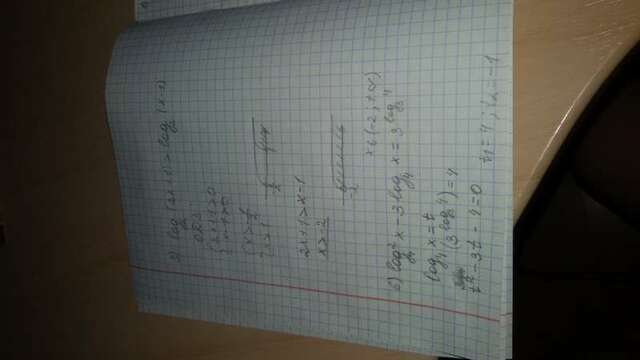 log₂(2x+1) > log₂(x-1)
ОДЗ
{ 2x+1>0
{ x-1>0
{ x>-1/2
{ x>1
2x+1>x-1
x>-2
-2
x ∈ (-2; +∞)
6) log₄²x - 3log₄ x = 3^log₃4
log₄ x = t
(3^log₃4) = 4
t² - 3t - 4 = 0 t₁ = 4; t₂ = -1